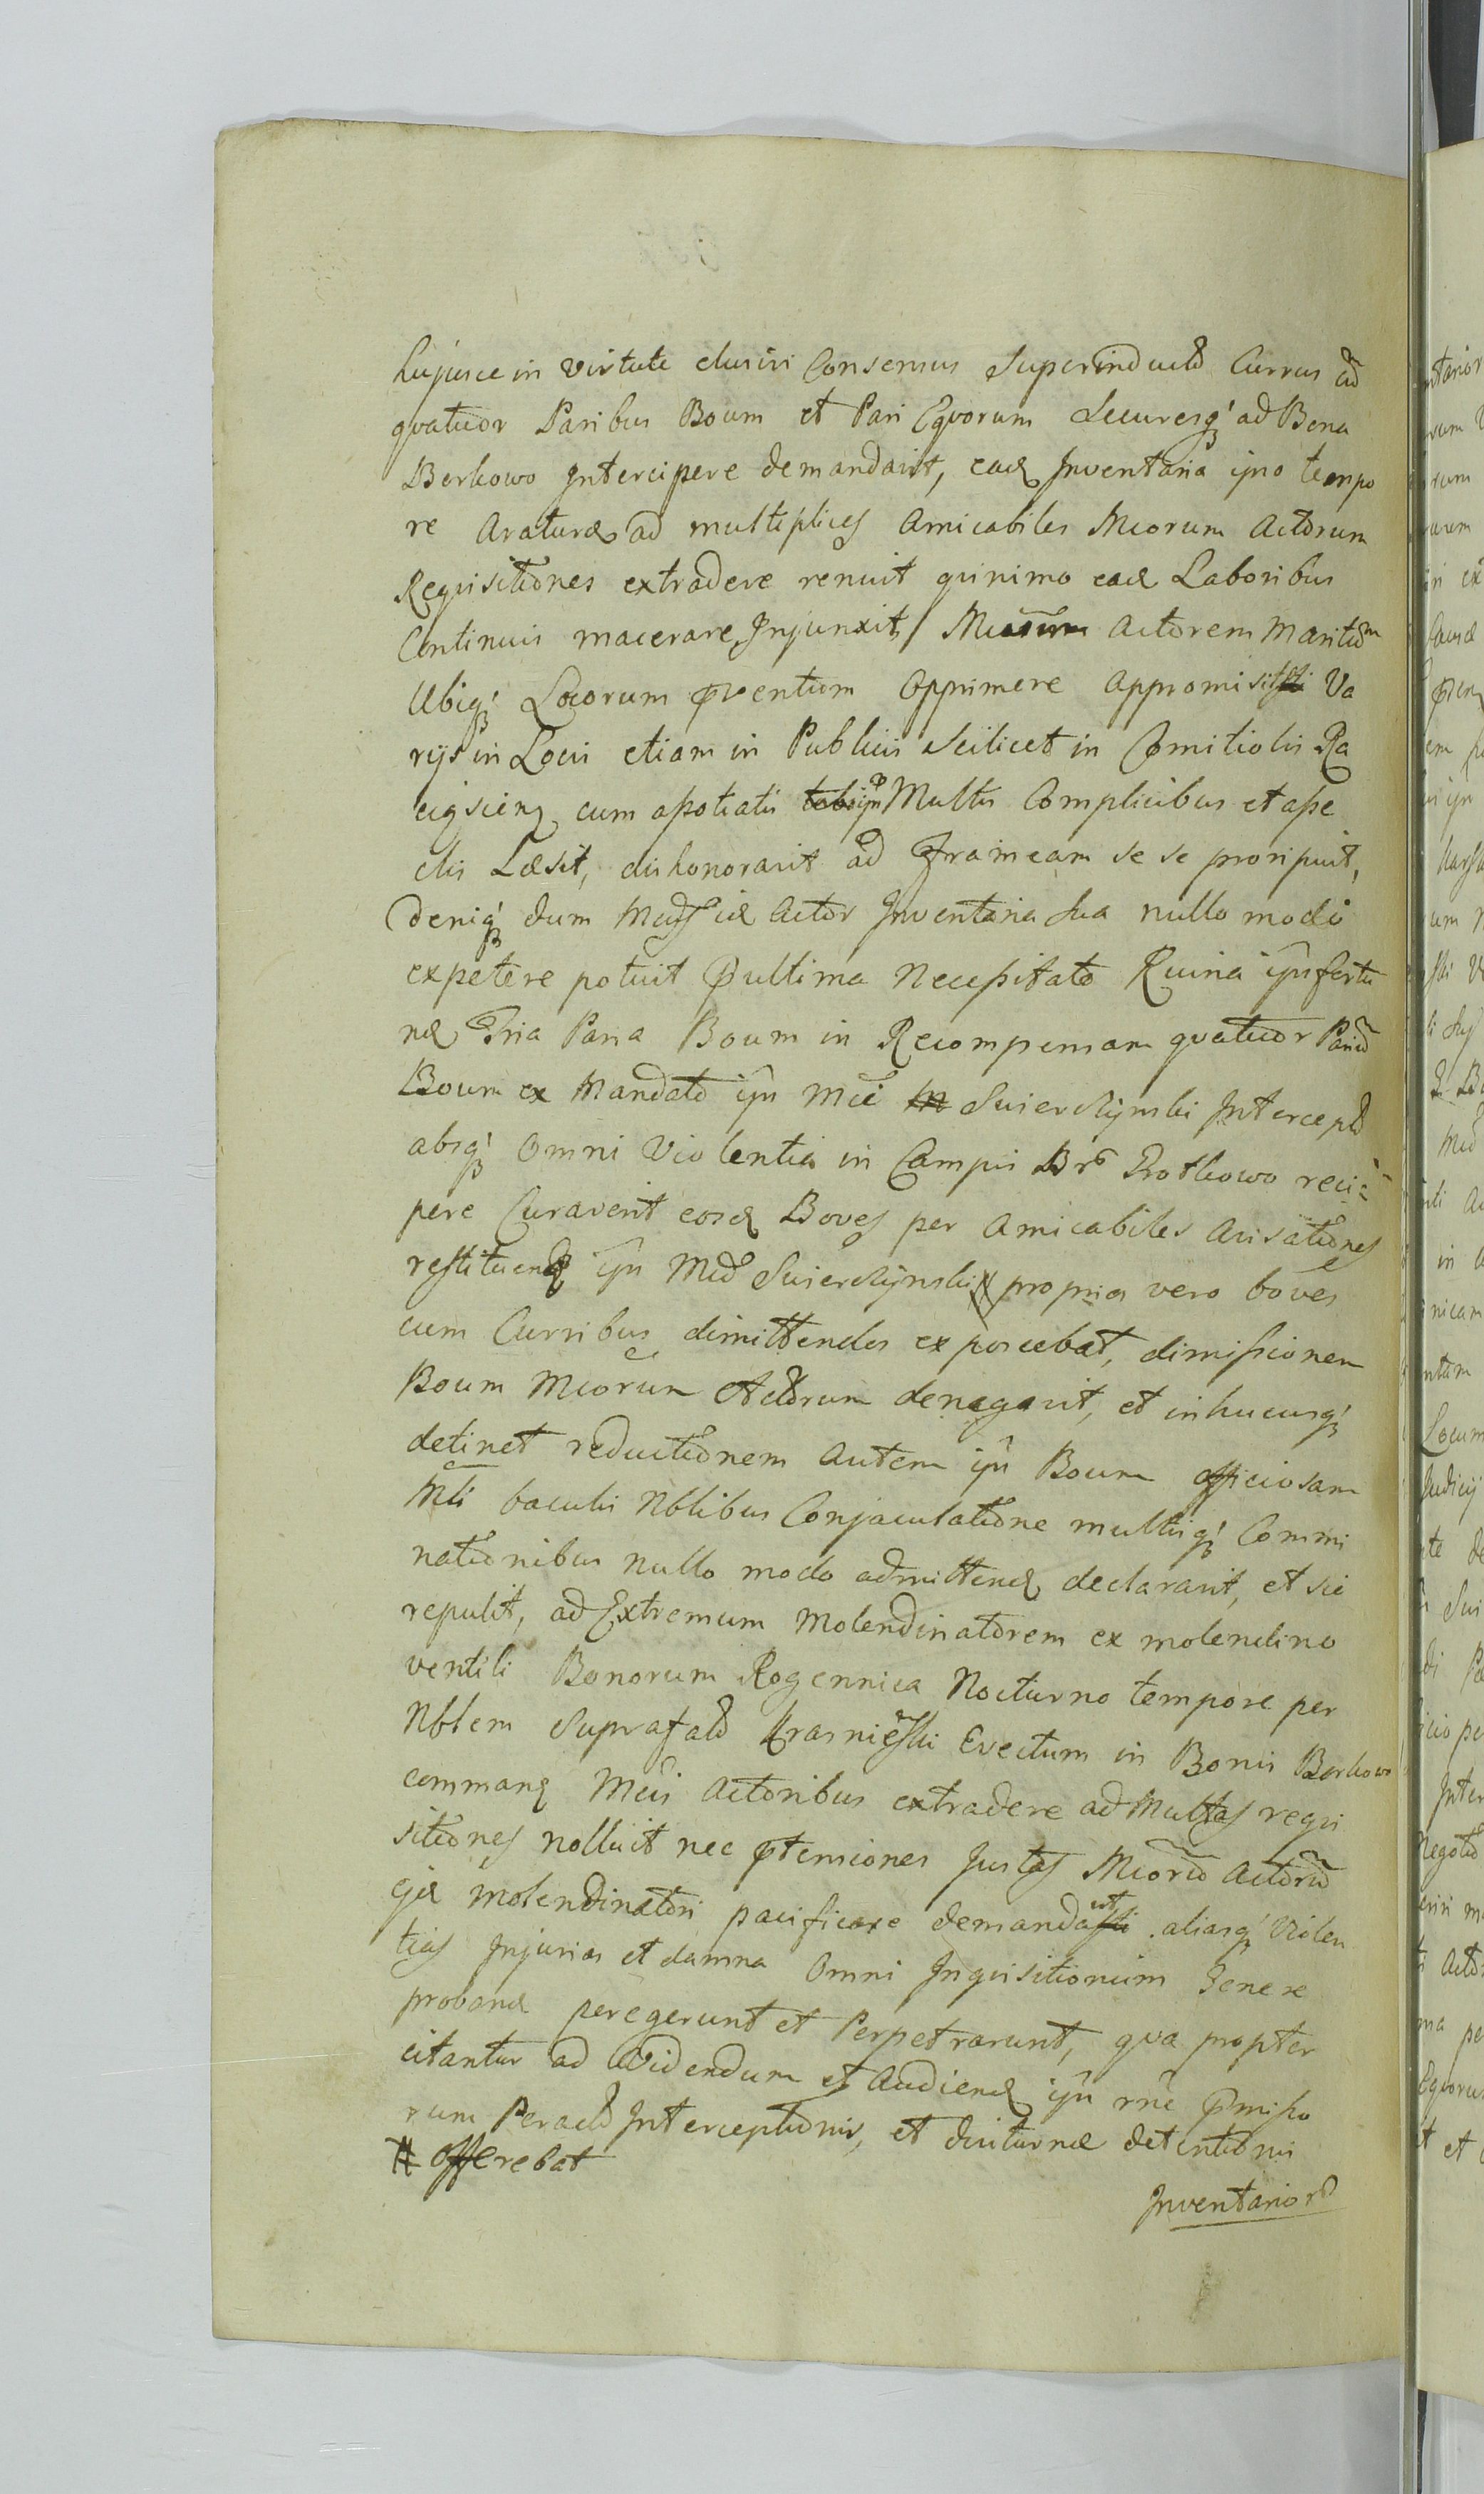 hujusce in virtute elusivi Consensus Superinducto Currus cu
qvatuor Paribus Boum et Pari Eqvorum Securesq ad Bona
Borkowo Intercipere demandavit, ead Inventaria ipso tempo
re Araturæ ad multiplices Amicabiles Mcorum Actorum
Reqvisitiones extradere renuit qvinimo ead Laboribus
Continuis macerare Injunxit, Actorem Maritum
Ubiq Locorum pventum opprimere appromisit Va
rys in Locis etiam in Publicis Scilicet in Comitiolis Ra
ciąscien cum asotiatis Multis Complicibus et asse
clis Læsit, dishonoravit ad frameam se se proripuit,
Deniq dum id Actor Inventaria Sua nullo modo
expetere potuit ultima Necessitate Ruina fortu
næ Tria Paria Boum in Recompensam qvatuor Pariu
Boum ex Mandato ipsi Mci Swierczynski Intercept
absq Omni Violentia in Campis Brõ Rotkowo reci=
pere Curaverit eosd Boves per Amicabiles Avisationes
restituend ipsi Mco Swierczynski # proprios vero boves
cum Curribus dimittendos exposcebat, dimissionem
Boum Mcorum Actorum denegavit, et inhucusq
detinet reductionem autem ipsi Boum officiosam
Mti baculis Nblibus Conjaculatione multisq Commi
nationibus nullo modo admittend declaravit, et sic
repulit, ad Extremum Molendinatorem ex molendino
ventili Bonorum Rogennica Nocturno tempore per
Nblem Suprafat Krasnieski Evectum in Bonis Borkowo
comman Mcis Actoribus extradere ad Multas reqvi
sitiones nolluit nec ptensiones Justas Mcorũ Actorũ
ejd molendinatori pacificare demandavit aliasq Violen
tias Injurias et damna Omni Inqvisitionum Genere
proband peregerunt et Perpetrarunt, qva propter
citantur ad Videndum et Audiend ipsi rne pmisso
rum Peract Interceptionis, et diuturnæ detentionis
# offerebat
Inventarioru